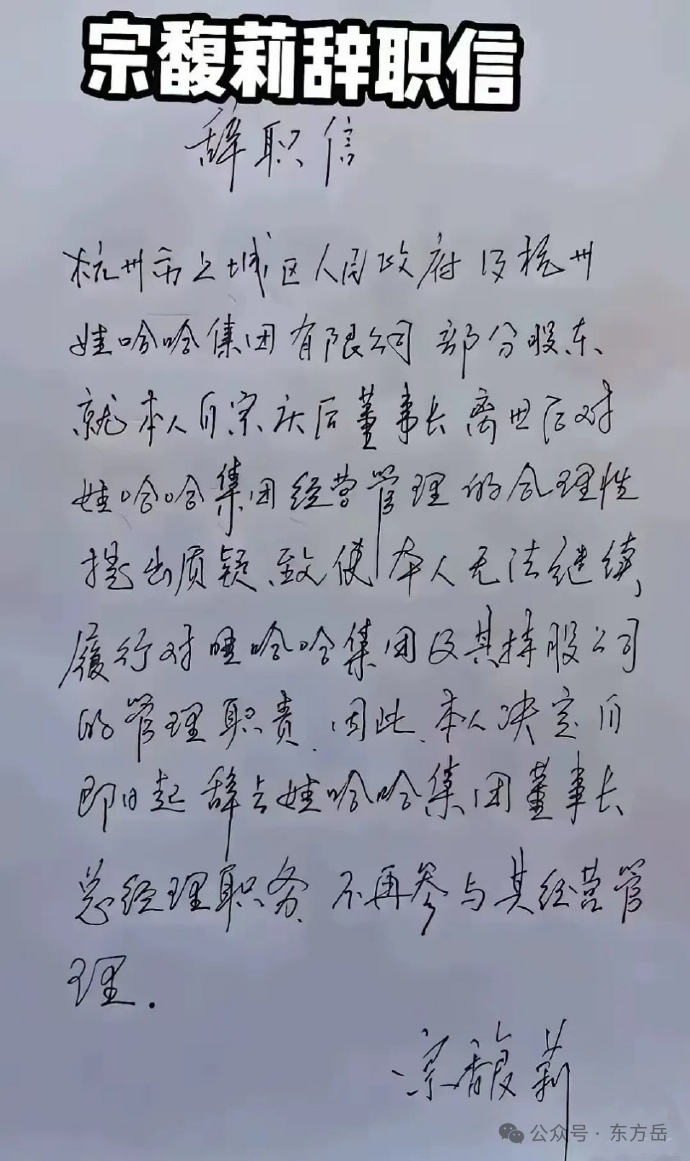 宗馥莉辞职信
辞职信
杭州市上城区人民政府及杭州
娃哈哈集团有限公司部分股东
就本人自宗庆后董事长离世后对
娃哈哈集团经营管理的合理性
提出质疑,致使本人无法继续
履行对哇哈哈集团及其持股公司
的管理职责.因此.本人决定自
即日起辞去娃哈哈集团董事长
总经理职务.不再参与其经营管
理.
宗馥莉
公众号·东方岳